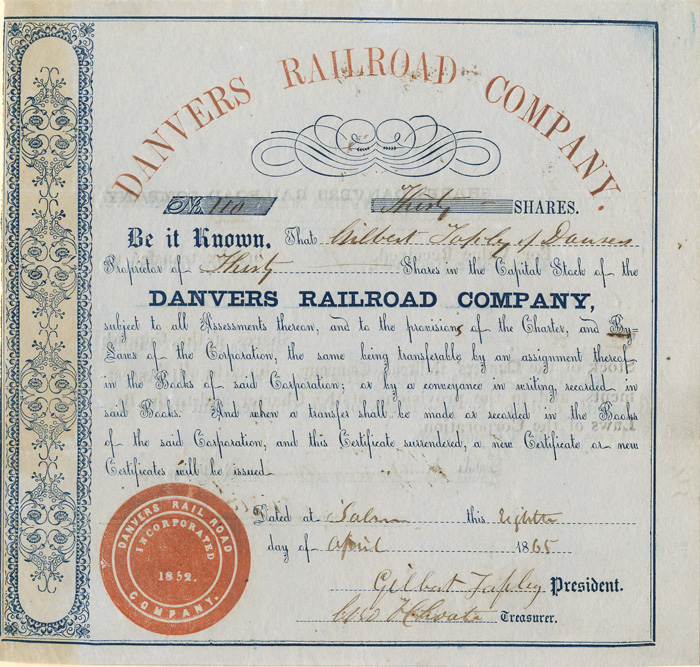 DANVERS RAILROAD COMPANY.
No. 110 Thirty SHARES.
Be it Known, That Gilbert Tapley of Danvers
Proprietor of Thirty Shares in the Capital Stock of the
DANVERS RAILROAD COMPANY,
subject to all Assessments thereon, and to the provisions of the Charter, and By-
Laws of the Corporation, the same being transferable by an assignment thereof
in the Books of said Corporation; or by a conveyance in writing, recorded in
said Books. And when a transfer shall be made or recorded in the Books
of the said Corporation, and this Certificate surrendered, a new Certificate or new
Certificates will be issued.
Dated at Salem this Eighth
day of April 1865
Gilbert Tapley President.
Geo F Choate Treasurer.
DANVERS RAIL ROAD
INCORPORATED
1852.
COMPANY.